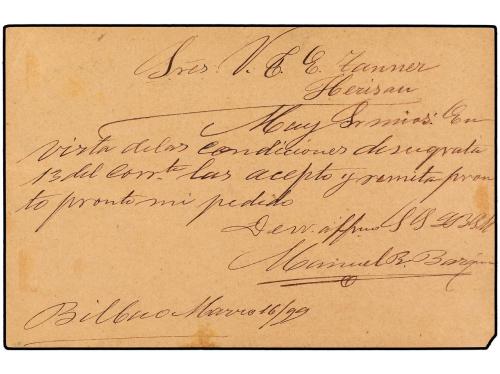 Sres. V. C. E. Tanner
Herisau
Muy Sr mios: En
vista de las condiciones de su grata
13 del corrte las acepto y remita pron
to pronto mi pedido
De vv. affmo S S
Manuel R.
Bilbao Marzo 16/99